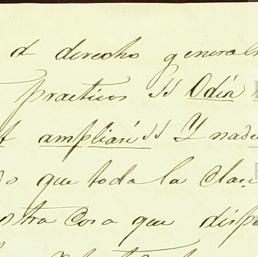 d derecho general
practicos SS Odia
ampliari SS Y nad
do que toda la clas
stra Cosa que disp